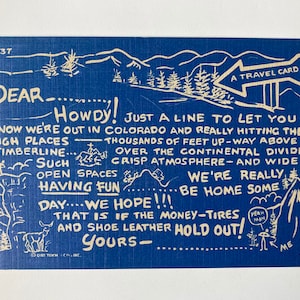 37
A TRAVEL CARD
DEAR
HOWDY! JUST A LINE TO LET YOU
NOW WE'RE OUT IN COLORADO AND REALLY HITTING THE
IGH PLACES — THOUSANDS OF FEET UP-WAY ABOVE
TIMBERLINE. OVER THE CONTINENTAL DIVID
SUCH CRISP ATMOSPHERE-AND WIDE
OPEN SPACES WE'RE REALLY
HAVING FUN BE HOME SOME
DAY---WE HOPE!!!
THAT IS IF THE MONEY-TIRES
AND SHOE LEATHER HOLD OUT!
YOURS—
ME